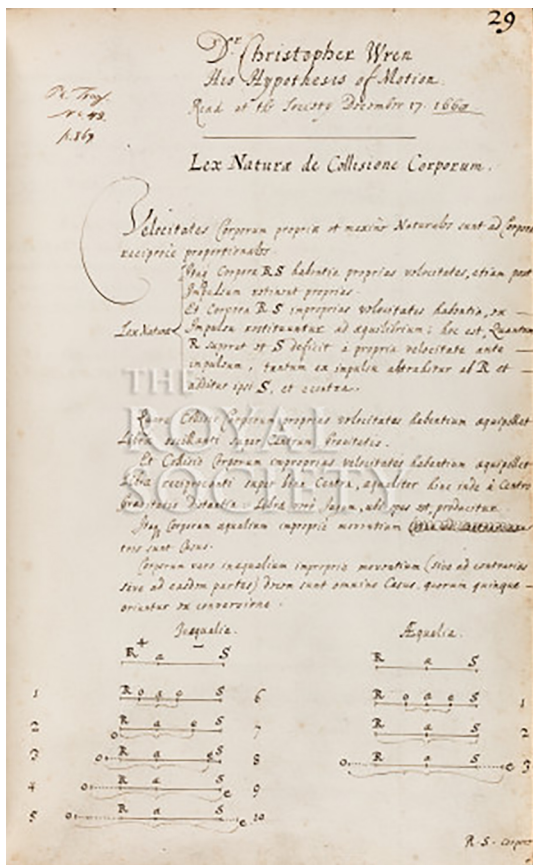 29
Dr Christopher Wren
His Hypothesis of Motion.
Read at the Society December 17. 1668
Ph. Trans.
No. 43.
p. 867
Lex Naturæ de Collisione Corporum.
Velocitates Corporum propriæ et maximè Naturales sunt ad Corpora
reciprocè proportionales.
Itaq Corpora R S habentia proprias velocitates, etiam post
Impulsum retinent proprias.
Et Corpora R S improprias velocitates habentia, ex
Lex Naturæ
Impulsu restituuntur ad æquilibrium; hoc est, Quantum
R superat et S deficit à propria velocitate ante
impulsum, tantum ex impulsu abtrahitur ab R et
additur ipsi S, et econtra.
Quare Collisio Corporum proprias velocitates habentium æquipollet
Libræ oscillanti super Centrum Gravitatis.
Et Collisio Corporum improprias velocitates habentium æquipollet
Libræ reciprocanti super bina Centra, æqualiter hinc inde à Centro
Gravitatis distantia: Libræ verò Jugum, ubi opus est, producitur.
Itaq Corporum æqualium impropriè moventium
tres sunt Casus.
Corporum vero inæqualium impropriè moventium (sive ad contrarias
sive ad easdem partes) decem sunt omnino Casus, quorum quinque
oriuntur ex conversione.
Inæqualia.
+ −
R a S
1 R o a e S 6
2 o R a e S 7
3 o R a e S 8
4 o R a S e 9
5 o R a S e 10
Æqualia.
R a S
R o a e S 1
R a S 2
o R a S e 3
R. S. Corpora
THE
ROYAL
SOCIETY